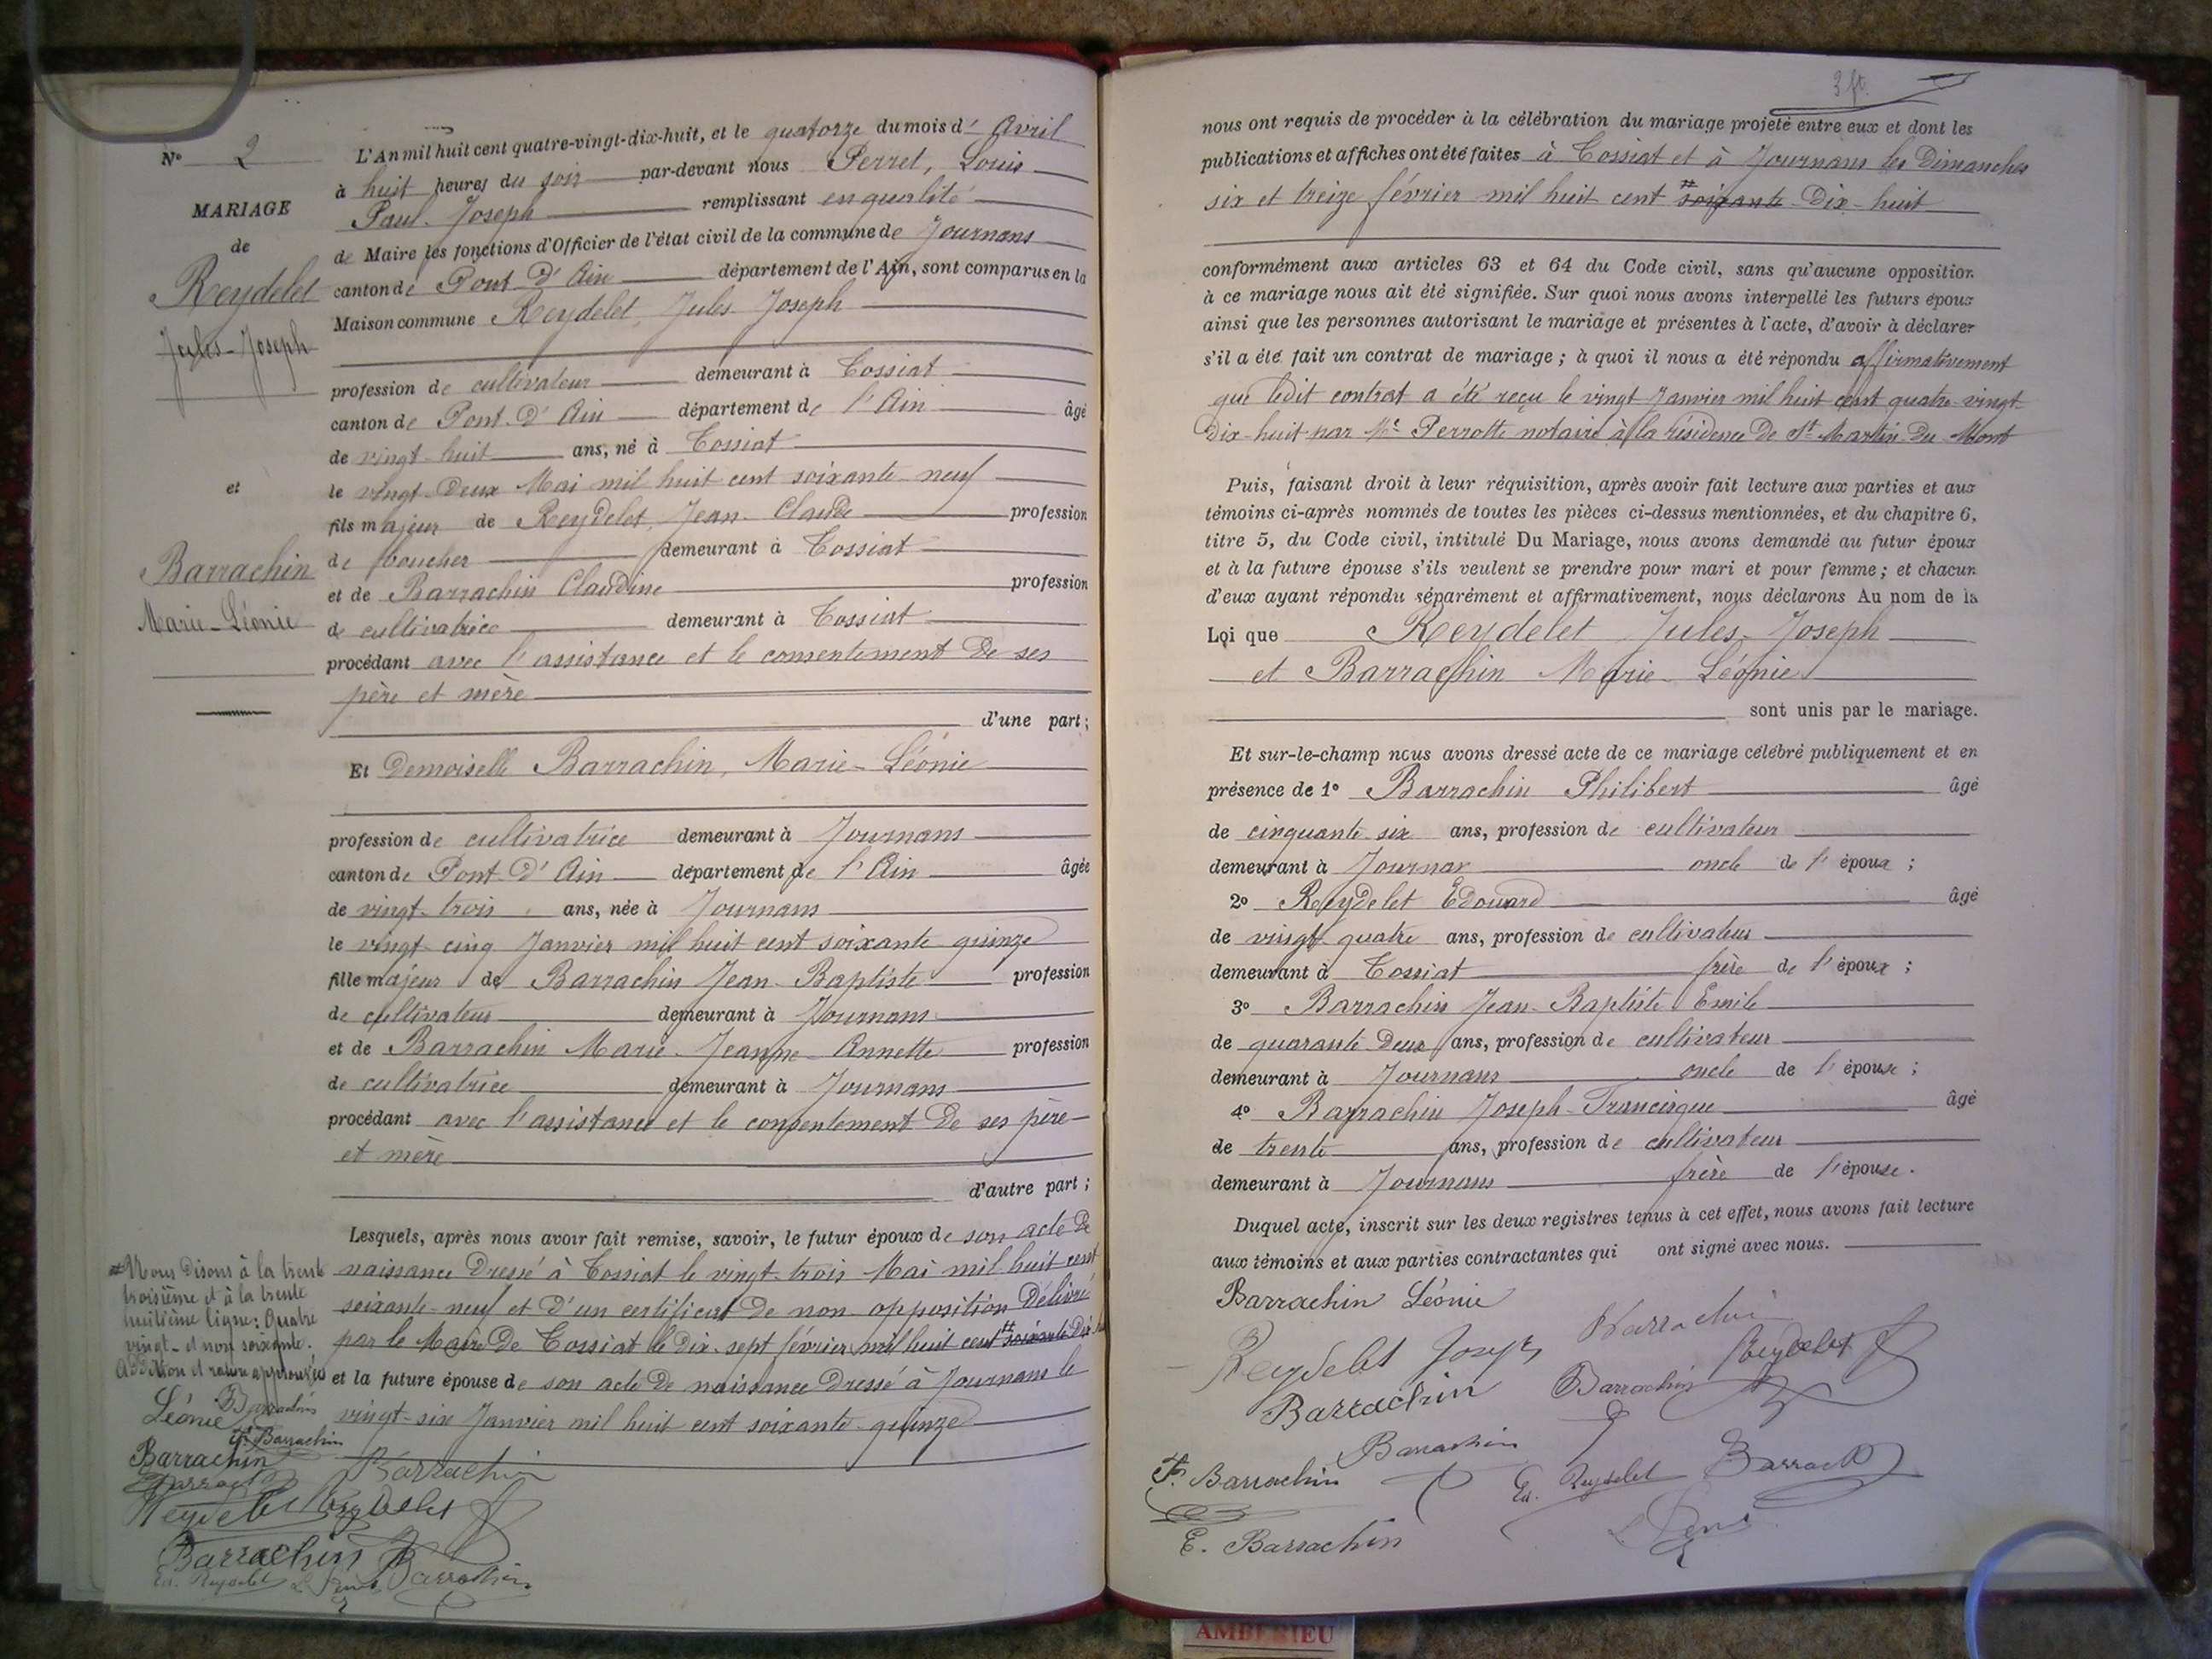 N° 2
MARIAGE
de
Reydelet
Jules-Joseph
et
Barrachin
Marie-Léonie
L'An mil huit cent quatre-vingt-dix-huit, et le quatorze du mois d' Avril
à huit heures du soir par-devant nous Perret, Louis
Paul-Joseph remplissant en qualité
de Maire les fonctions d'Officier de l'état civil de la commune de Journans
canton de Pont d'Ain département de l'Ain, sont comparus en la
Maison commune Reydelet, Jules Joseph
profession de cultivateur demeurant à Tossiat
canton de Pont-d'Ain département de l'Ain âgé
de vingt-huit ans, né à Tossiat
le vingt-deux Mai mil huit cent soixante-neuf
fils majeur de Reydelet, Jean-Claude profession
de boucher demeurant à Tossiat
et de Barrachin Claudine profession
de cultivatrice demeurant à Tossiat
procédant avec l'assistance et le consentement de ses
père et mère
d'une part;
Et Demoiselle Barrachin, Marie-Léonie
profession de cultivatrice demeurant à Journans
canton de Pont-d'Ain département de l'Ain âgée
de vingt-trois ans, née à Journans
le vingt-cinq Janvier mil huit cent soixante-quinze
fille majeur de Barrachin Jean-Baptiste profession
de cultivateur demeurant à Journans
et de Barrachin Marie-Jeanne-Annette profession
de cultivatrice demeurant à Journans
procédant avec l'assistance et le consentement de ses père
et mère
d'autre part;
Lesquels, après nous avoir fait remise, savoir, le futur époux de son acte de
naissance dressé à Tossiat le vingt-trois Mai mil huit cent
soixante-neuf et d'un certificat de non opposition délivré
par le Maire de Tossiat le dix-sept février mil huit cent soixante dix
et la future épouse de son acte de naissance dressé à Journans le
vingt-six Janvier mil huit cent soixante-quinze
Nous disons à la trente
troisième et à la trente
huitième ligne: Quatre
vingt- et non soixante.
Addition et rature approuvées
Léonie Barrachin
F. Barrachin
Barrachin Barrachin
Barrachin
Reydelet Reydelet
Barrachin Barrachin
Ed. Reydelet
3 ft.
nous ont requis de procéder à la célébration du mariage projeté entre eux et dont les
publications et affiches ont été faites à Tossiat et à Journans les Dimanches
six et treize février mil huit cent soixante-dix-huit
conformément aux articles 63 et 64 du Code civil, sans qu'aucune opposition
à ce mariage nous ait été signifiée. Sur quoi nous avons interpellé les futurs époux
ainsi que les personnes autorisant le mariage et présentes à l'acte, d'avoir à déclarer
s'il a été fait un contrat de mariage; à quoi il nous a été répondu affirmativement
que ledit contrat a été reçu le vingt Janvier mil huit cent quatre-vingt-
dix-huit par Me Perrotte notaire à la résidence de St Martin-du-Mont
Puis, faisant droit à leur réquisition, après avoir fait lecture aux parties et aux
témoins ci-après nommés de toutes les pièces ci-dessus mentionnées, et du chapitre 6,
titre 5, du Code civil, intitulé Du Mariage, nous avons demandé au futur époux
et à la future épouse s'ils veulent se prendre pour mari et pour femme; et chacun
d'eux ayant répondu séparément et affirmativement, nous déclarons Au nom de la
Loi que Reydelet Jules-Joseph
et Barrachin Marie-Léonie
sont unis par le mariage.
Et sur-le-champ nous avons dressé acte de ce mariage célébré publiquement et en
présence de 1° Barrachin Philibert âgé
de cinquante-six ans, profession de cultivateur
demeurant à Journan oncle de l'époux;
2° Reydelet Edouard âgé
de vingt-quatre ans, profession de cultivateur
demeurant à Tossiat frère de l'époux;
3° Barrachin Jean-Baptiste Emile
de quarante-deux ans, profession de cultivateur
demeurant à Journans oncle de l'épouse;
4° Barrachin Joseph-Francisque âgé
de trente ans, profession de cultivateur
demeurant à Journans frère de l'épouse.
Duquel acte, inscrit sur les deux registres tenus à cet effet, nous avons fait lecture
aux témoins et aux parties contractantes qui ont signé avec nous.
Barrachin Léonie
Barrachin
Reydelet Joseph Reydelet
Barrachin Barrachin
Barrachin
F. Barrachin Ed. Reydelet Barrachin
E. Barrachin
AMBERIEU